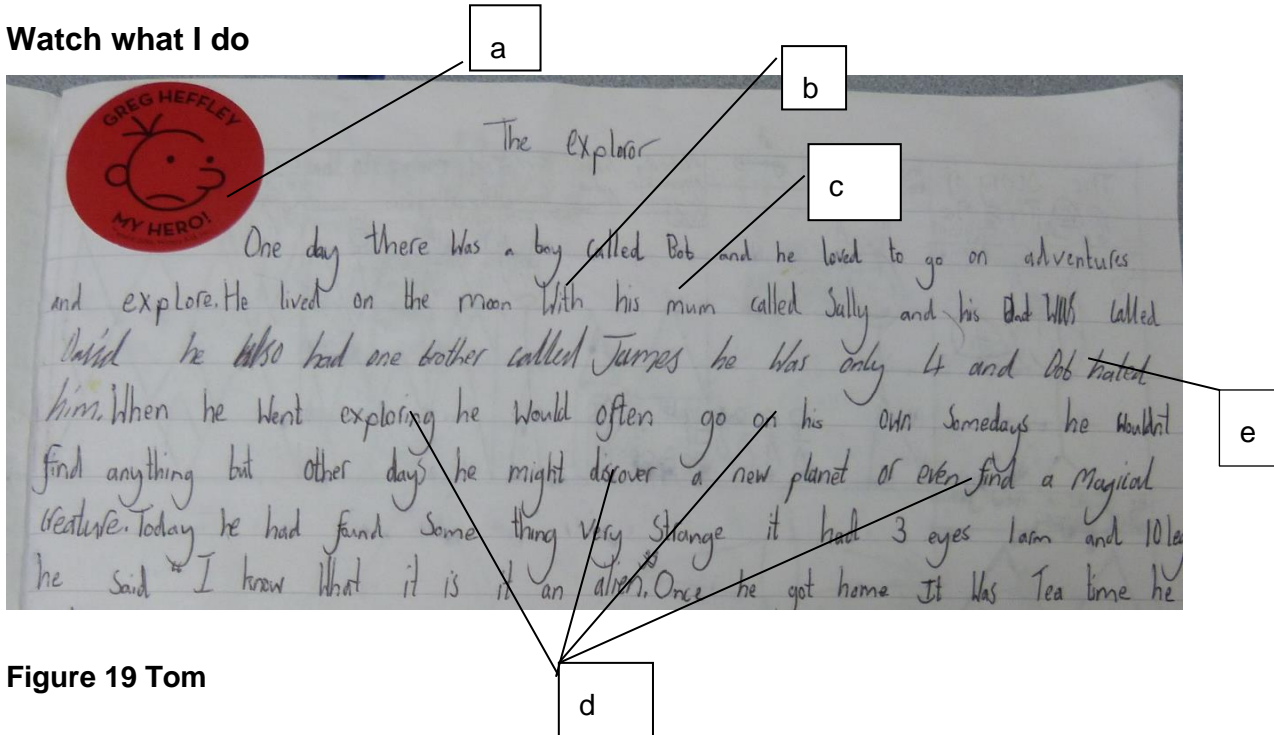 Watch what I do
a
b
c
GREG HEFFLEY
MY HERO!
The exploror
One day there was a boy called Bob and he loved to go on adventures
and explore. He lived on the moon With his mum called Sally and his Dad was called
David he also had one brother called James he was only 4 and Bob hated
him. When he went exploring he would often go on his own Somedays he wouldn't
find anything but other days he might discover a new planet or even find a Magical
creature. Today he had found Some thing very strange it had 3 eyes 1arm and 10 leg
he said "I know What it is it an alien". Once he got home It was Tea time he
e
d
Figure 19 Tom